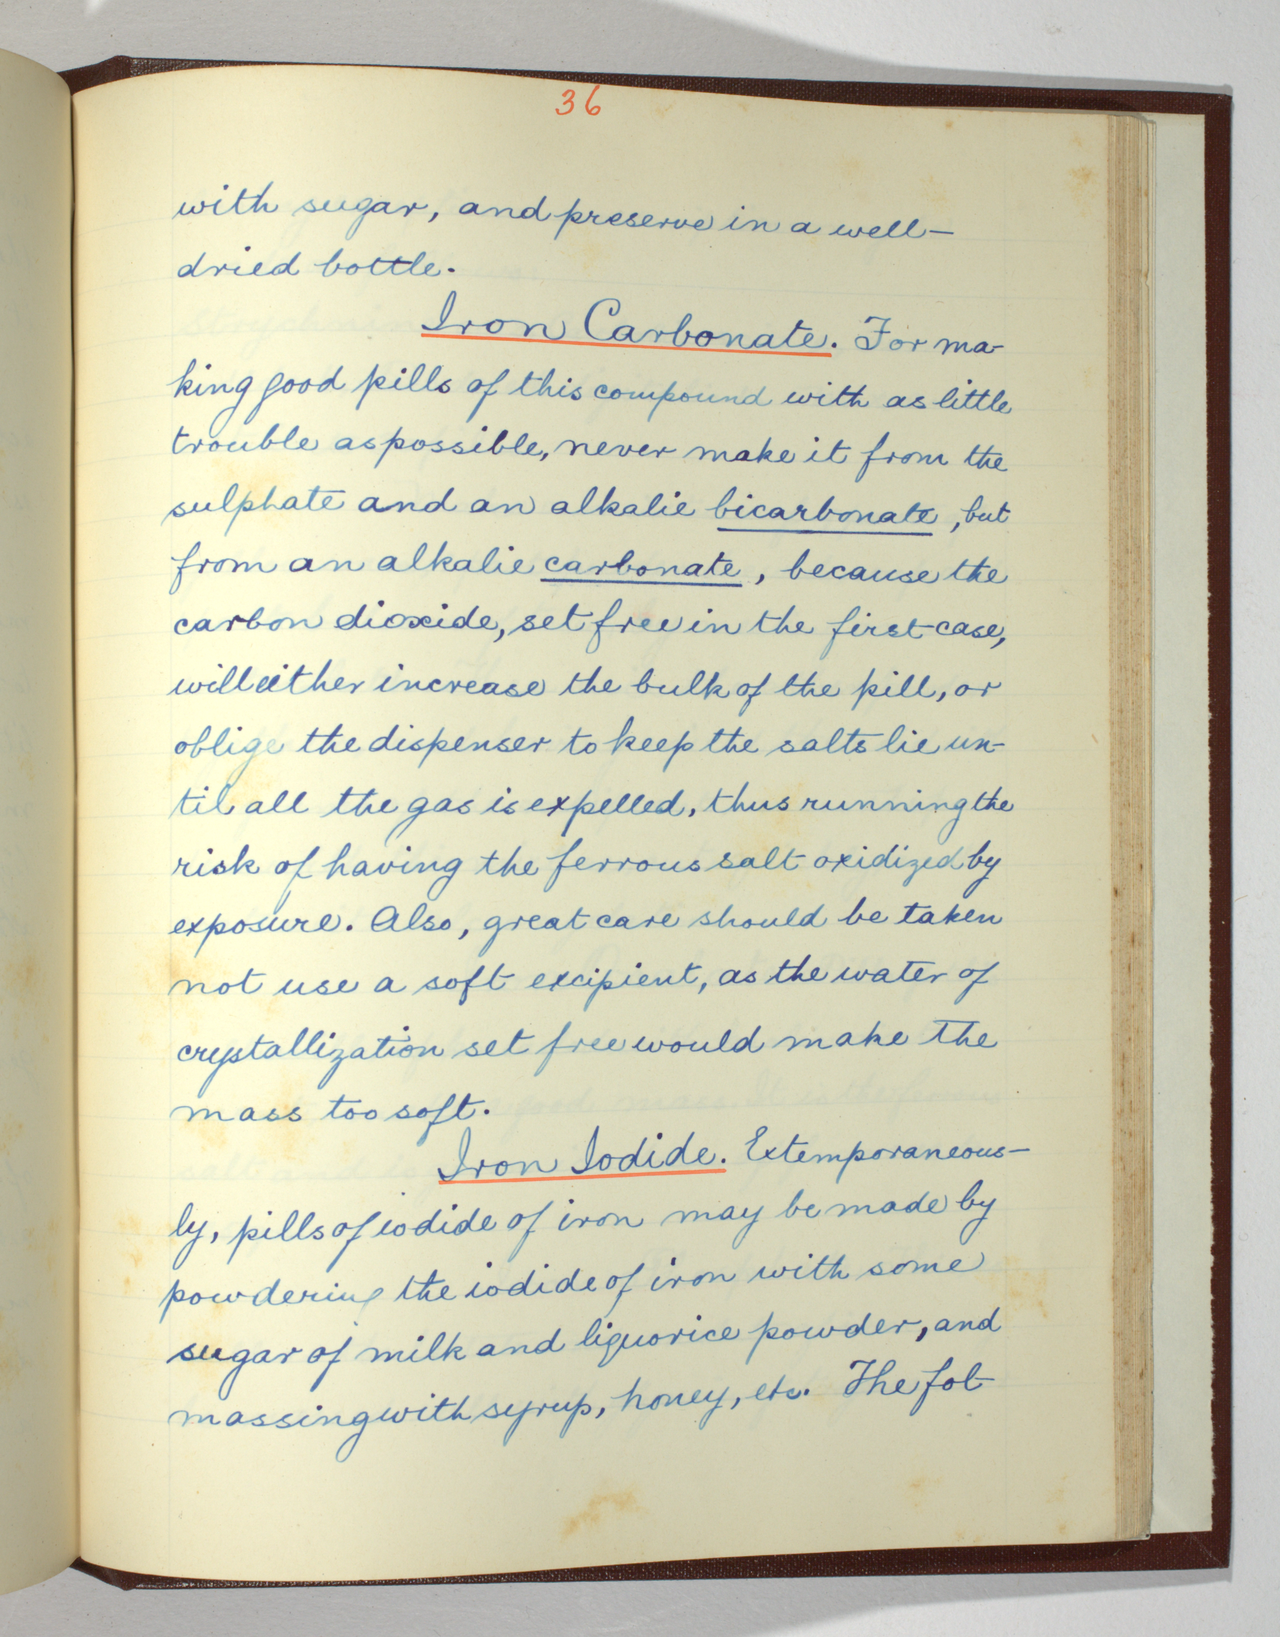 36
with sugar, and preserve in a well-
dried bottle.
Iron Carbonate. For ma-
king good pills of this compound with as little
trouble as possible, never make it from the
sulphate and an alkalie bicarbonate, but
from an alkalie carbonate, because the
carbon dioxide, set free in the first case,
will either increase the bulk of the pill, or
oblige the dispenser to keep the salts lie un-
til all the gas is expelled, thus running the
risk of having the ferrous salt oxidized by
exposure. Also, great care should be taken
not use a soft excipient, as the water of
crystallization set free would make the
mass too soft.
Iron Iodide. Extemporaneous-
ly, pills of iodide of iron may be made by
powdering the iodide of iron with some
sugar of milk and liquorice powder, and
massing with syrup, honey, etc. The fol-